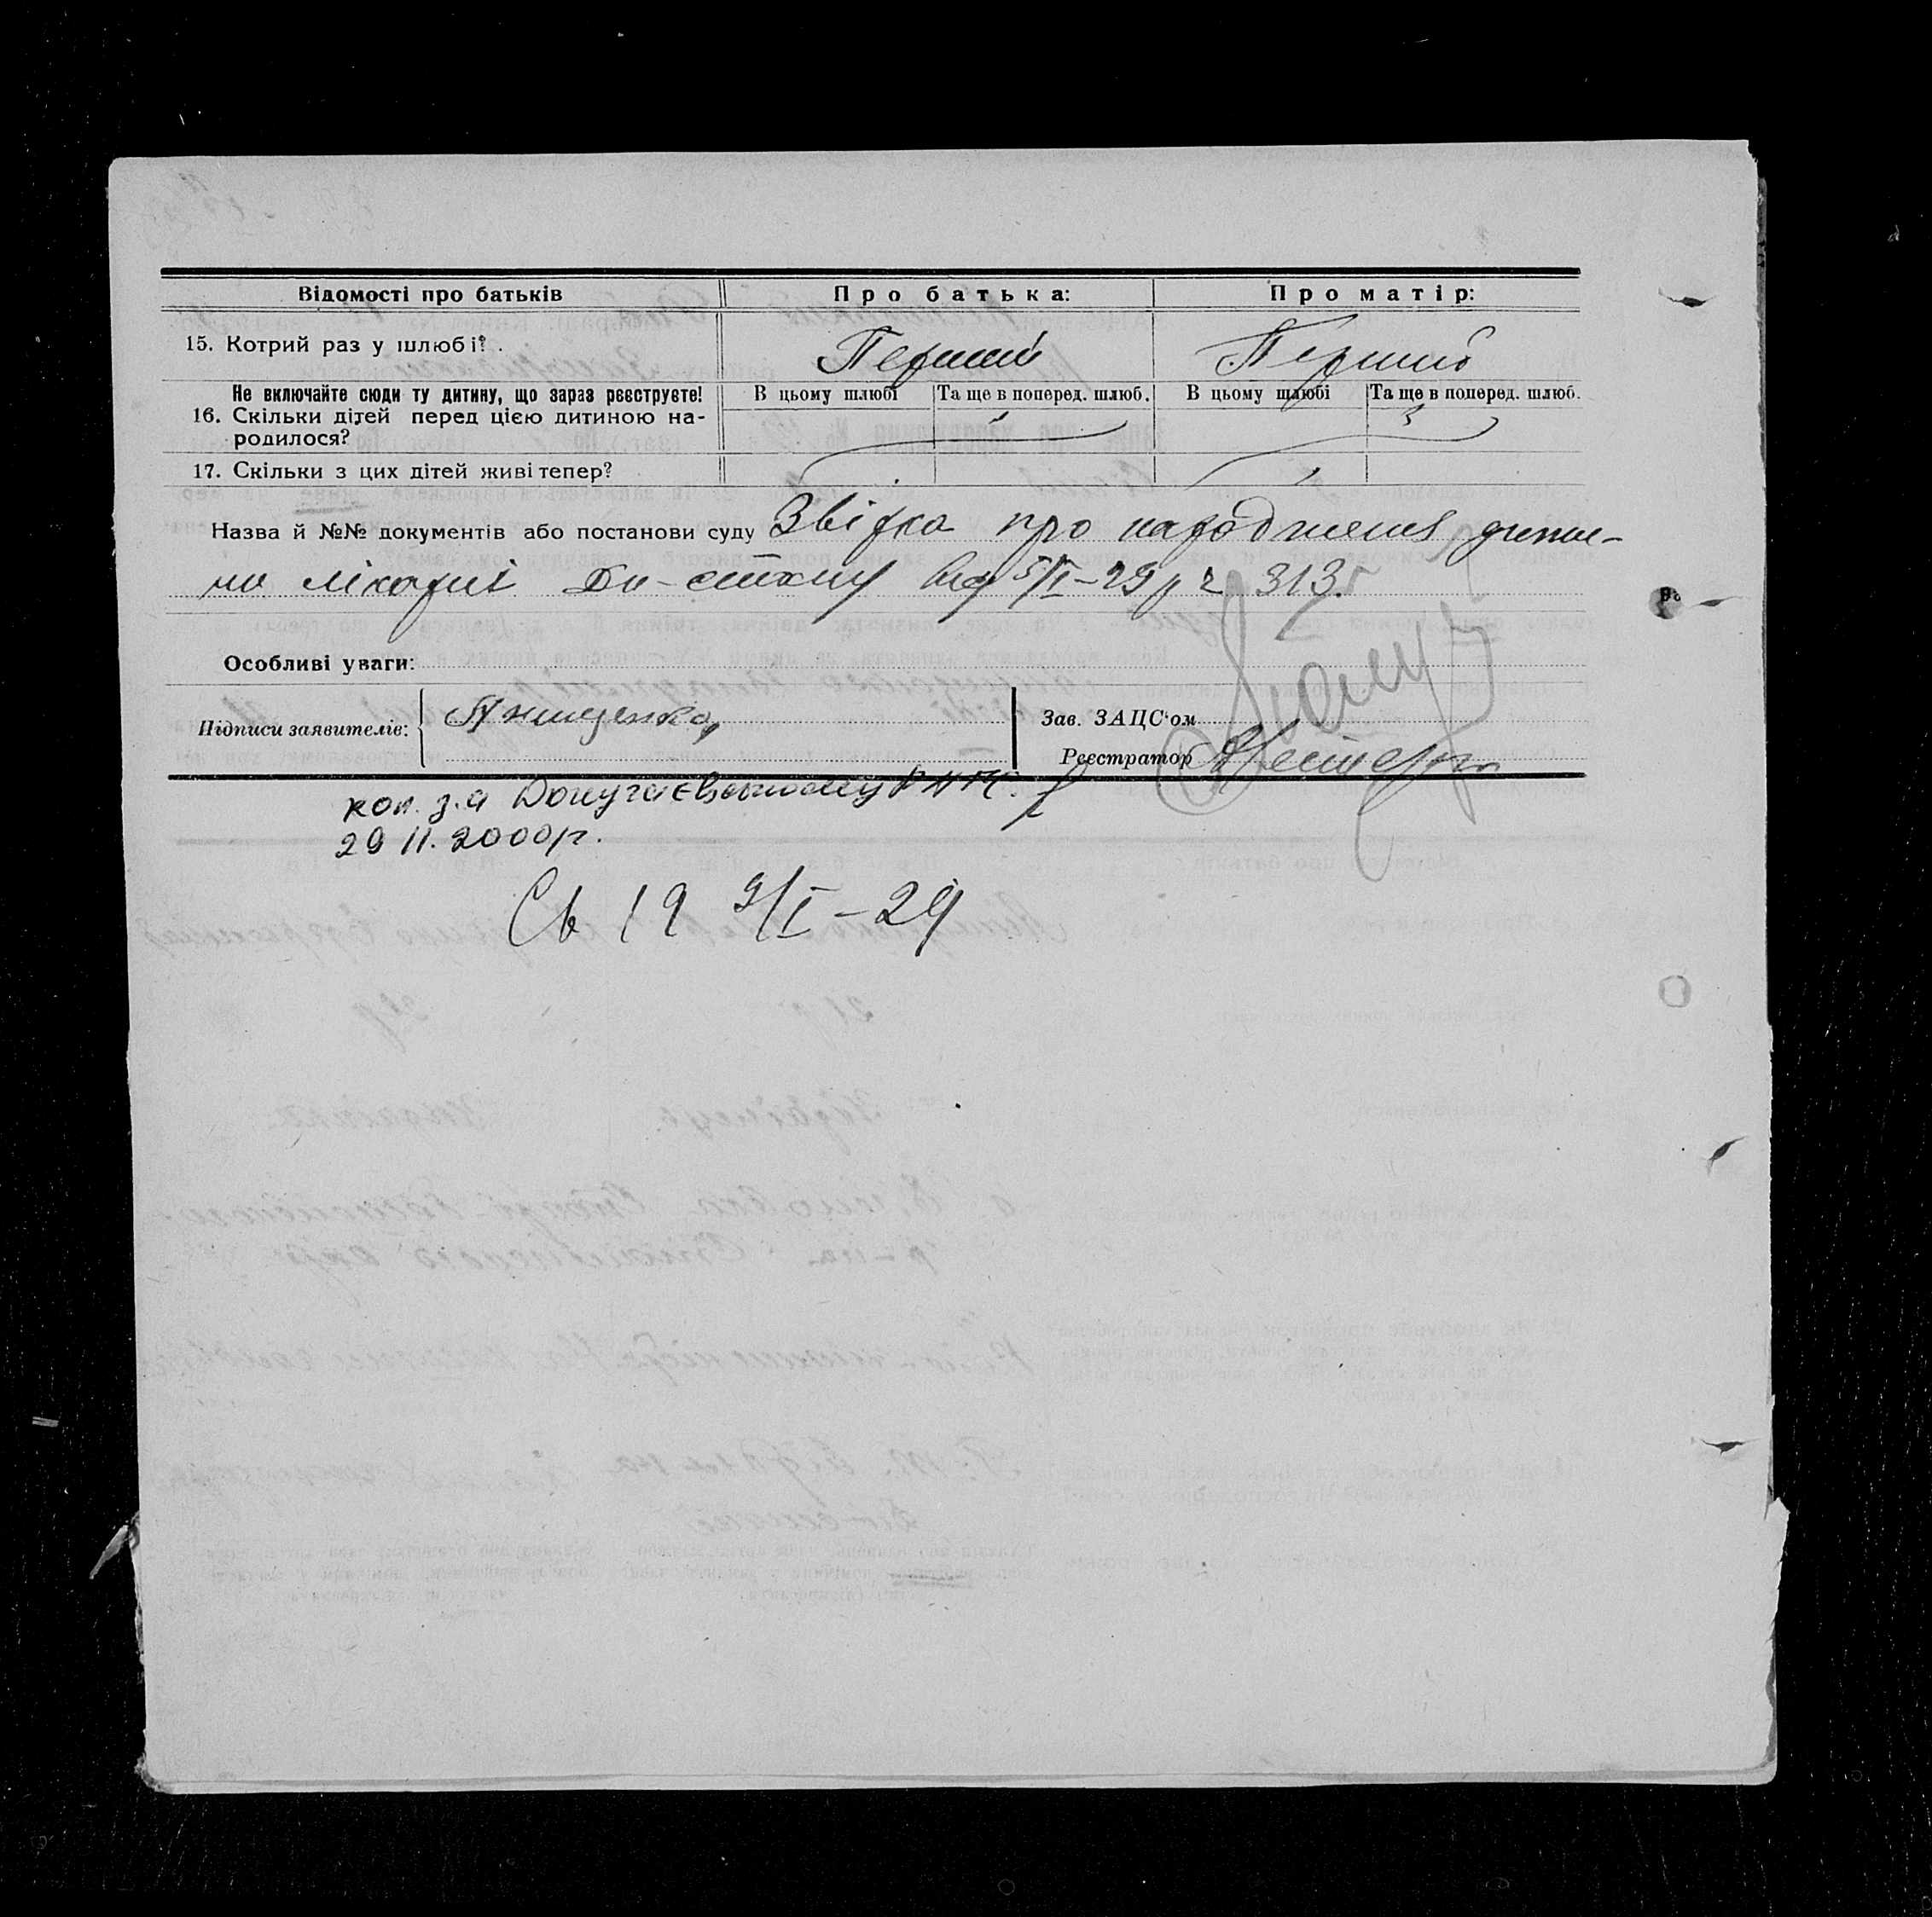 Відомості про батьків Про батька: Про матір:
15. Котрий раз у шлюбі? Перший Перший
Не включайте сюди ту дитину, що зараз реєструєте! В цьому шлюбі Та ще в поперед. шлюб. В цьому шлюбі Та ще в поперед. шлюб.
16. Скільки дітей перед цією дитиною на-
родилося?
17. Скільки з цих дітей живі тепер?
Назва й №№ документів або постанови суду Звідка про народження дити-
ни лікарні від 5/I-29 р 313.
Особливі уваги:
Підписи заявителів: Зав. ЗАЦС'ом
Реєстратор
коп. з.а
29 11. 2000р.
Св 19 9/I-29